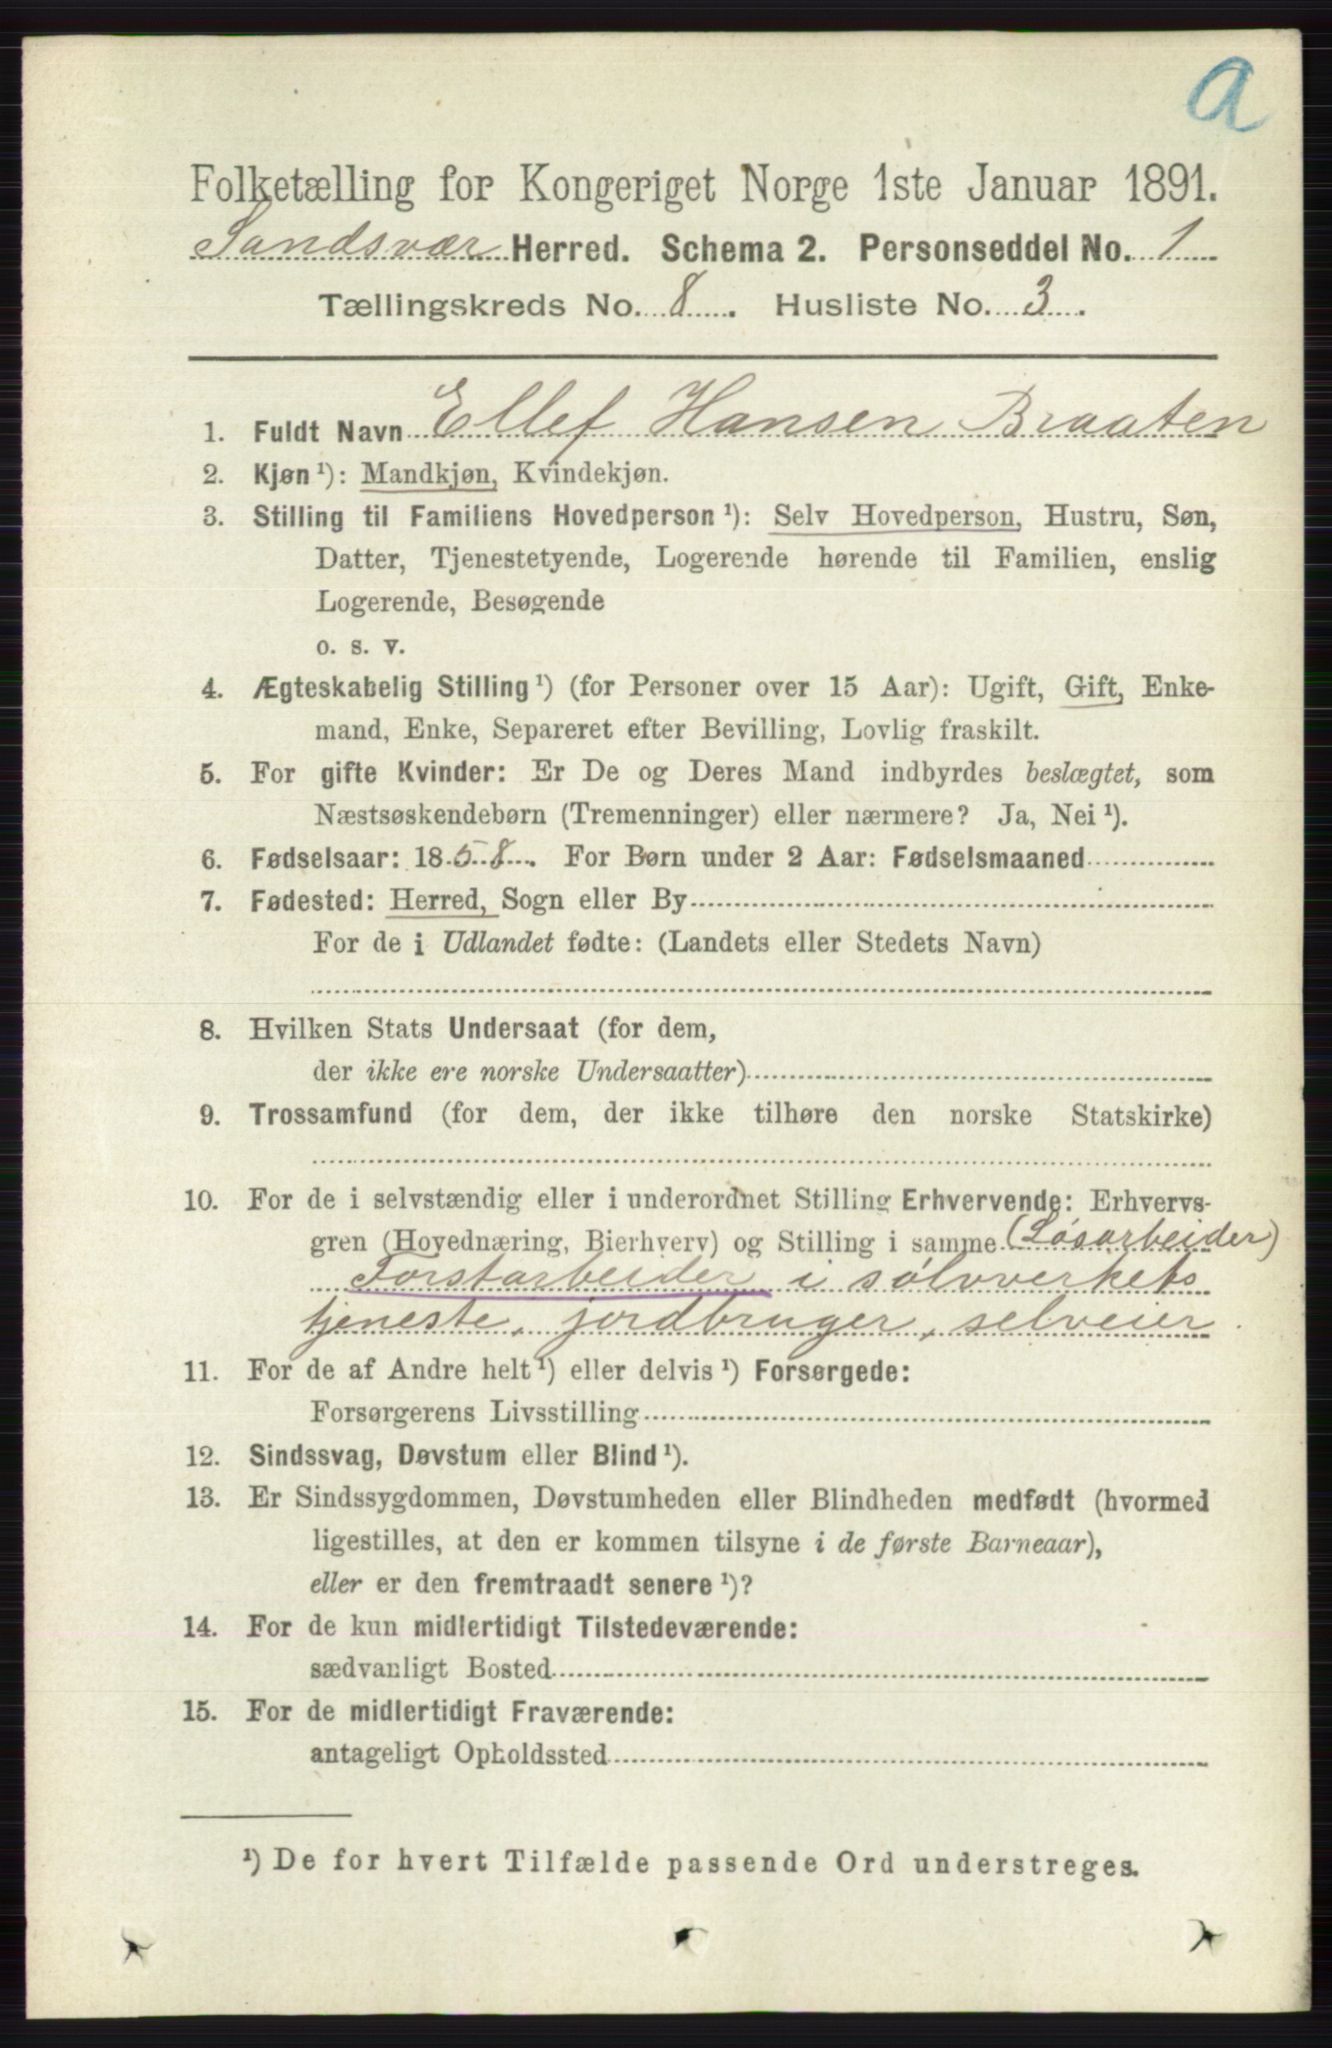 a
Folketælling for Kongeriget Norge 1ste Januar 1891.
Sandsvær Herred. Schema 2. Personseddel No. 1
Tællingskreds No. 8. Husliste No. 3.
1. Fuldt Navn Ellef Hansen Braaten
2. Kjøn ¹): Mandkjøn, Kvindekjøn.
3. Stilling til Familiens Hovedperson ¹): Selv Hovedperson, Hustru, Søn,
Datter, Tjenestetyende, Logerende hørende til Familien, enslig
Logerende, Besøgende
o. s. v.
4. Ægteskabelig Stilling ¹) (for Personer over 15 Aar): Ugift, Gift, Enke-
mand, Enke, Separeret efter Bevilling, Lovlig fraskilt.
5. For gifte Kvinder: Er De og Deres Mand indbyrdes beslægtet, som
Næstsøskendebørn (Tremenninger) eller nærmere? Ja, Nei ¹).
6. Fødselsaar: 1858. For Børn under 2 Aar: Fødselsmaaned
7. Fødested: Herred, Sogn eller By
For de i Udlandet fødte: (Landets eller Stedets Navn)
8. Hvilken Stats Undersaat (for dem,
der ikke ere norske Undersaatter)
9. Trossamfund (for dem, der ikke tilhøre den norske Statskirke)
10. For de i selvstændig eller i underordnet Stilling Erhvervende: Erhvervs-
gren (Hovednæring, Bierhverv) og Stilling i samme (Løsarbeider)
Forstarbeider i sølvverkets
tjeneste, jordbruger, selveier
11. For de af Andre helt ¹) eller delvis ¹) Forsørgede:
Forsørgerens Livsstilling
12. Sindssvag, Døvstum eller Blind ¹).
13. Er Sindssygdommen, Døvstumheden eller Blindheden medfødt (hvormed
ligestilles, at den er kommen tilsyne i de første Barneaar),
eller er den fremtraadt senere ¹)?
14. For de kun midlertidigt Tilstedeværende:
sædvanligt Bosted
15. For de midlertidigt Fraværende:
antageligt Opholdssted
¹) De for hvert Tilfælde passende Ord understreges.